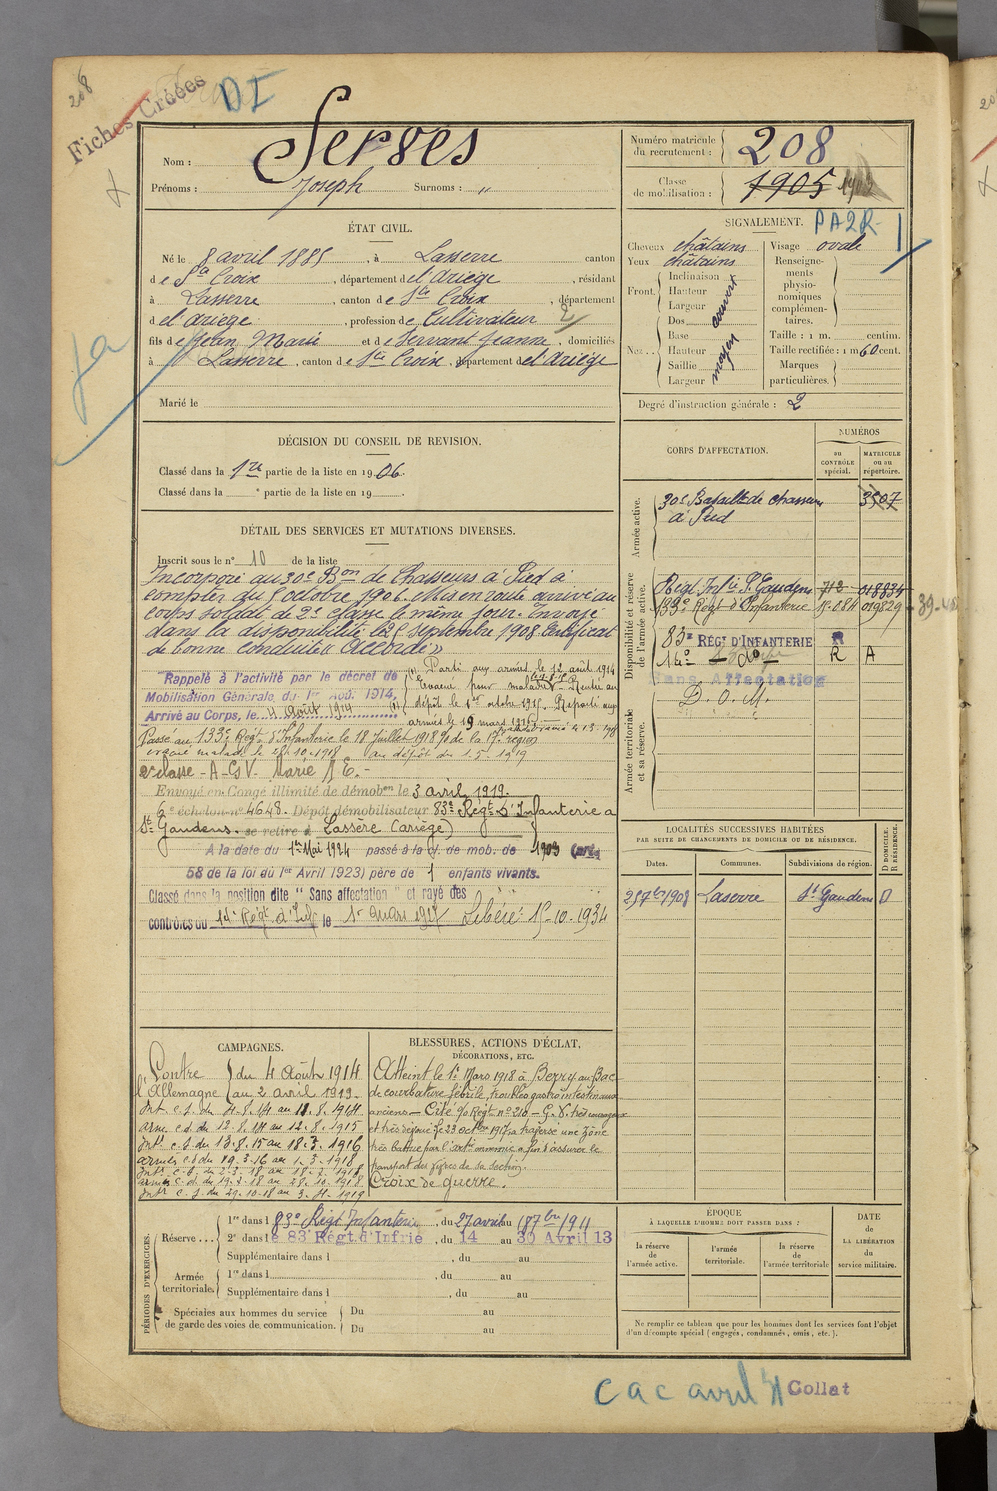 208
Fiches Créées
DI
Nom : Serges
Prénoms : Joseph Surnoms : "
Numéro matricule du recrutement : 208
Classe de mobilisation : 1905
ÉTAT CIVIL.
Né le 8 avril 1885, à Lasserre canton
de Ste Croix, département de l'Ariège, résidant
à Lasserre, canton de Ste Croix, département
de l'Ariège, profession de Cultivateur
fils de Jean Marie et de Servant Jeanne, domiciliés
à Lasserre, canton de Ste Croix, département de l'Ariège
Marié le
SIGNALEMENT.
PA2R
Cheveux châtains
Yeux châtains
Front. Inclinaison
Hauteur
Largeur
couvert
Nez. Dos
Base
Hauteur
Saillie
Largeur
moyen
Visage ovale
Renseignements physionomiques complémentaires.
Taille : 1 m. centim.
Taille rectifiée : 1 m 60 cent.
Marques particulières.
Degré d'instruction générale : 2
DÉCISION DU CONSEIL DE REVISION.
Classé dans la 1re partie de la liste en 1906.
Classé dans la e partie de la liste en 19
DÉTAIL DES SERVICES ET MUTATIONS DIVERSES.
Inscrit sous le n° 10 de la liste
Incorporé au 30e Bon de Chasseurs à Pied à
compter du 8 octobre 1906. Mis en route arrivé au
corps soldat de 2e classe le même jour. Envoyé
dans la disponibilité le 25 Septembre 1908 Certificat
de bonne conduite "Accordé"
Rappelé à l'activité par le décret de
Mobilisation Générale du 1er Aoû. 1914,
Arrivé au Corps, le 4 Août 1914
(1) Parti aux armées le 12 août 1914
Evacué pour maladie Rentré au
dépôt le 1er octobre 1915. Reparti aux
armées le 19 mars 1916
Passé au 133e Régt d'Infanterie le 18 Juillet 1918 de la 17e région
évacué malade le 28.10.1918 au dépôt du 1.5.1919
2e classe - A - G V. Marié 1 E. -
Envoyé en Congé illimité de démobon le 3 avril 1919.
6e échelon n° 4648. Dépôt démobilisateur 83e Régt d'Infanterie à
St Gaudens. se retire à Lassère (Ariège)
A la date du 1er Mai 1924 passé à la cl. de mob. de 1903 (article
58 de la loi du 1er Avril 1923) père de 1 enfants vivants.
Classé dans la position dite " Sans affectation " et rayé des
contrôles du 14e Régt d'Inf le 1er Mars 1927 Libéré: 15-10-1934
CORPS D'AFFECTATION.
NUMÉROS
au CONTRÔLE spécial.
MATRICULE ou au répertoire.
Armée active.
30e Bataille de chasseurs
à Pied
3507
Disponibilité et réserve de l'armée active.
Régt Infie St Gaudens 712 018334
133e Régt d'Infanterie 019829
39-
83e RÉGt D'INFANTERIE R
14e - do - R A
Sans Affectation
D. O. M.
Armée territoriale et sa réserve.
LOCALITÉS SUCCESSIVES HABITÉES
PAR SUITE DE CHANGEMENTS DE DOMICILE OU DE RÉSIDENCE.
Dates. Communes. Subdivisions de région. D DOMICILE. R RÉSIDENCE.
25 7bre 1908 Laserre St Gaudens D
CAMPAGNES.
Contre l'Allemagne
du 4 Août 1914
au 2 avril 1919.
Int. c.s. du 4.8.14 au 11.8.1914
arm. c.d. du 12.8.14 au 12.8.1915
Int. c.s du 13.8.15 au 18.3.1916
armées c.d du 19.3.16 au 1.3.1918
Int. c.s. du 2.3.18 au 18.3.1918
armées c.d. du 19.3.18 au 28.10.1918
Intr c.s. du 29.10.18 au 3.4.1919
BLESSURES, ACTIONS D'ÉCLAT,
DÉCORATIONS, ETC.
Atteint le 1er Mars 1918 à Berry au Bac
de courbature fébrile, troubles gastro intestinaux
anciens - Cité % Régt n° 210 - G. V. très courageux
et très dévoué le 23 octbre 1917 a traversé une zone
très battue par l'artie ennemie afin d'assurer le
transport des vivres de sa section.
Croix de guerre.
PÉRIODES D'EXERCICES.
Réserve... 1re dans l 83e Régt Infanterie, du 27 avril au 18 7bre 1911
2e dans l e 83 Régt.d'Infrie, du 14 au 30 Avril 13
Supplémentaire dans l , du au
Armée territoriale. 1re dans l , du au
Supplémentaire dans l , du au
Spéciales aux hommes du service de garde des voies de communication. Du au
Du au
ÉPOQUE
À LAQUELLE L'HOMME DOIT PASSER DANS :
la réserve de l'armée active.
l'armée territoriale.
la réserve de l'armée territoriale
DATE de LA LIBÉRATION du service militaire.
Ne remplir ce tableau que pour les hommes dont les services font l'objet
d'un décompte spécial (engagés, condamnés, omis, etc.).
c a c avril 31 Collat